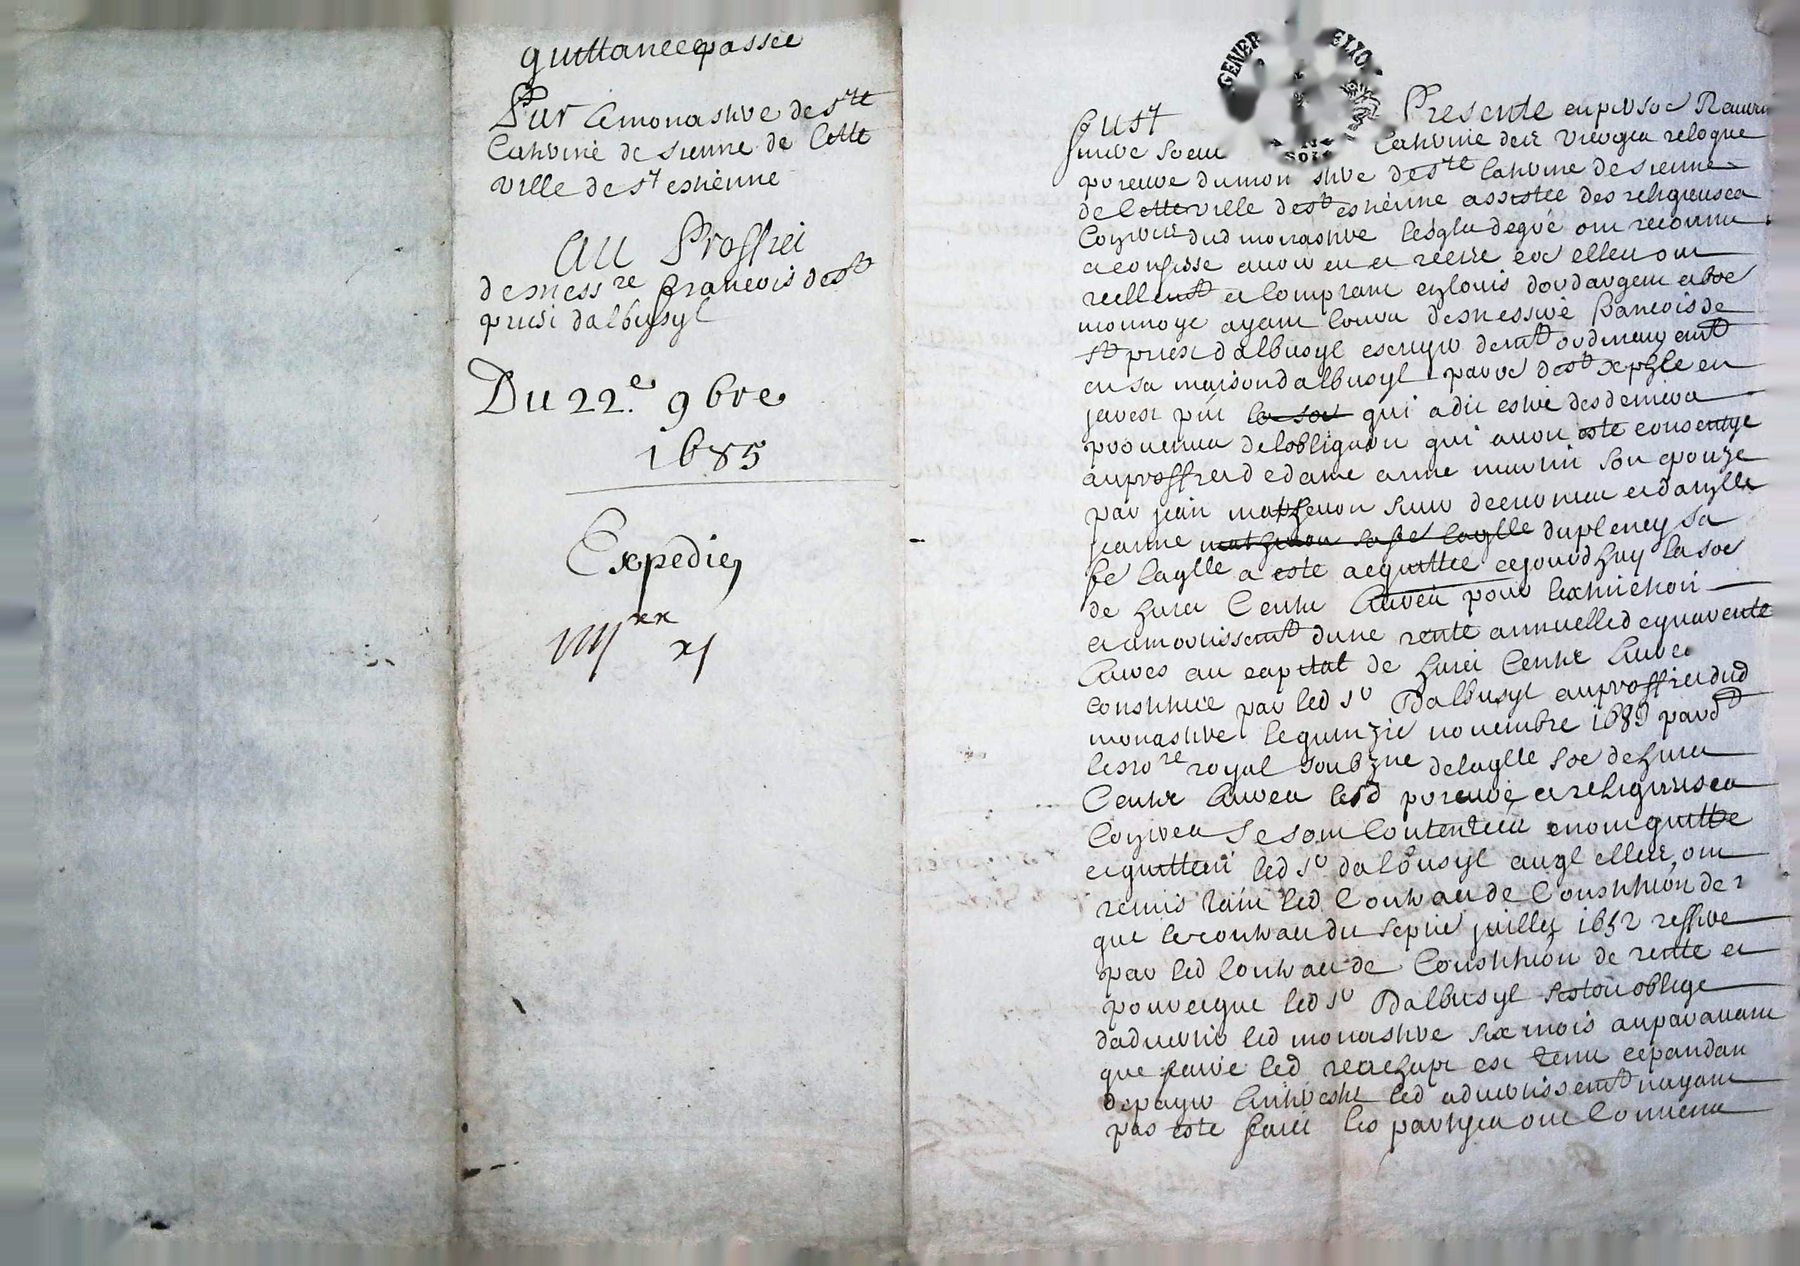 quittance passée
Par le monastere de Ste
Catherine de Sienne de cette
ville de St estienne
Au Proffict
de messre francois de St
priest dalbusyl
Du 22.e 9bre
1685
Expedie
iiijxx xj
GENER
Fust Presente en personne Reuer
mere soeur Catherine des vierges religieuse
prieure du monastere de Ste Catherine de Sienne
de cette ville de St estienne assistée des religieuses
dud monastere ont reconnu
et confesse auoir eu et receu
reellemt et comptant en louis dor dargent et aoe
monnoye ayant cours de messire francois de
St priest dalbusyl escuyer demt ordinairemt
en sa maison dalbusyl parre de St en
forest pnt qui a dit estre des deniers
prouenus de lobligaon qui auoit este consentye
au proffict de dame anne son epouze
par jean et damlle
jeanne
laqlle a este acquittee cejourdhuy la soe
de huict Cents liures pour lextinction
et amortissemt dune rente annuelle de quarente
liures au capital de huict Cents liures
constituée par led Sr Dalbusyl au proffict dud
monastere le quinzie nouembre 168 pard
le nore royal soubzne de laqlle soe de huict
Cents liures lesd prieure et religieuses
se sont contentées en ont quitte
et quittent led Sr dalbusyl auql elles ont
remis tant led contract de Constitution
que le contract du sepie juillet 1652
par led contract de Constitution de rente et
led Sr Dalbusyl sestoit oblige
daduertir led monastere six mois auparauant
que faire led reachapt et tenu cepandant
de payer linterest led aduertissemt nayant
pas este faict les partyes ont conuenu